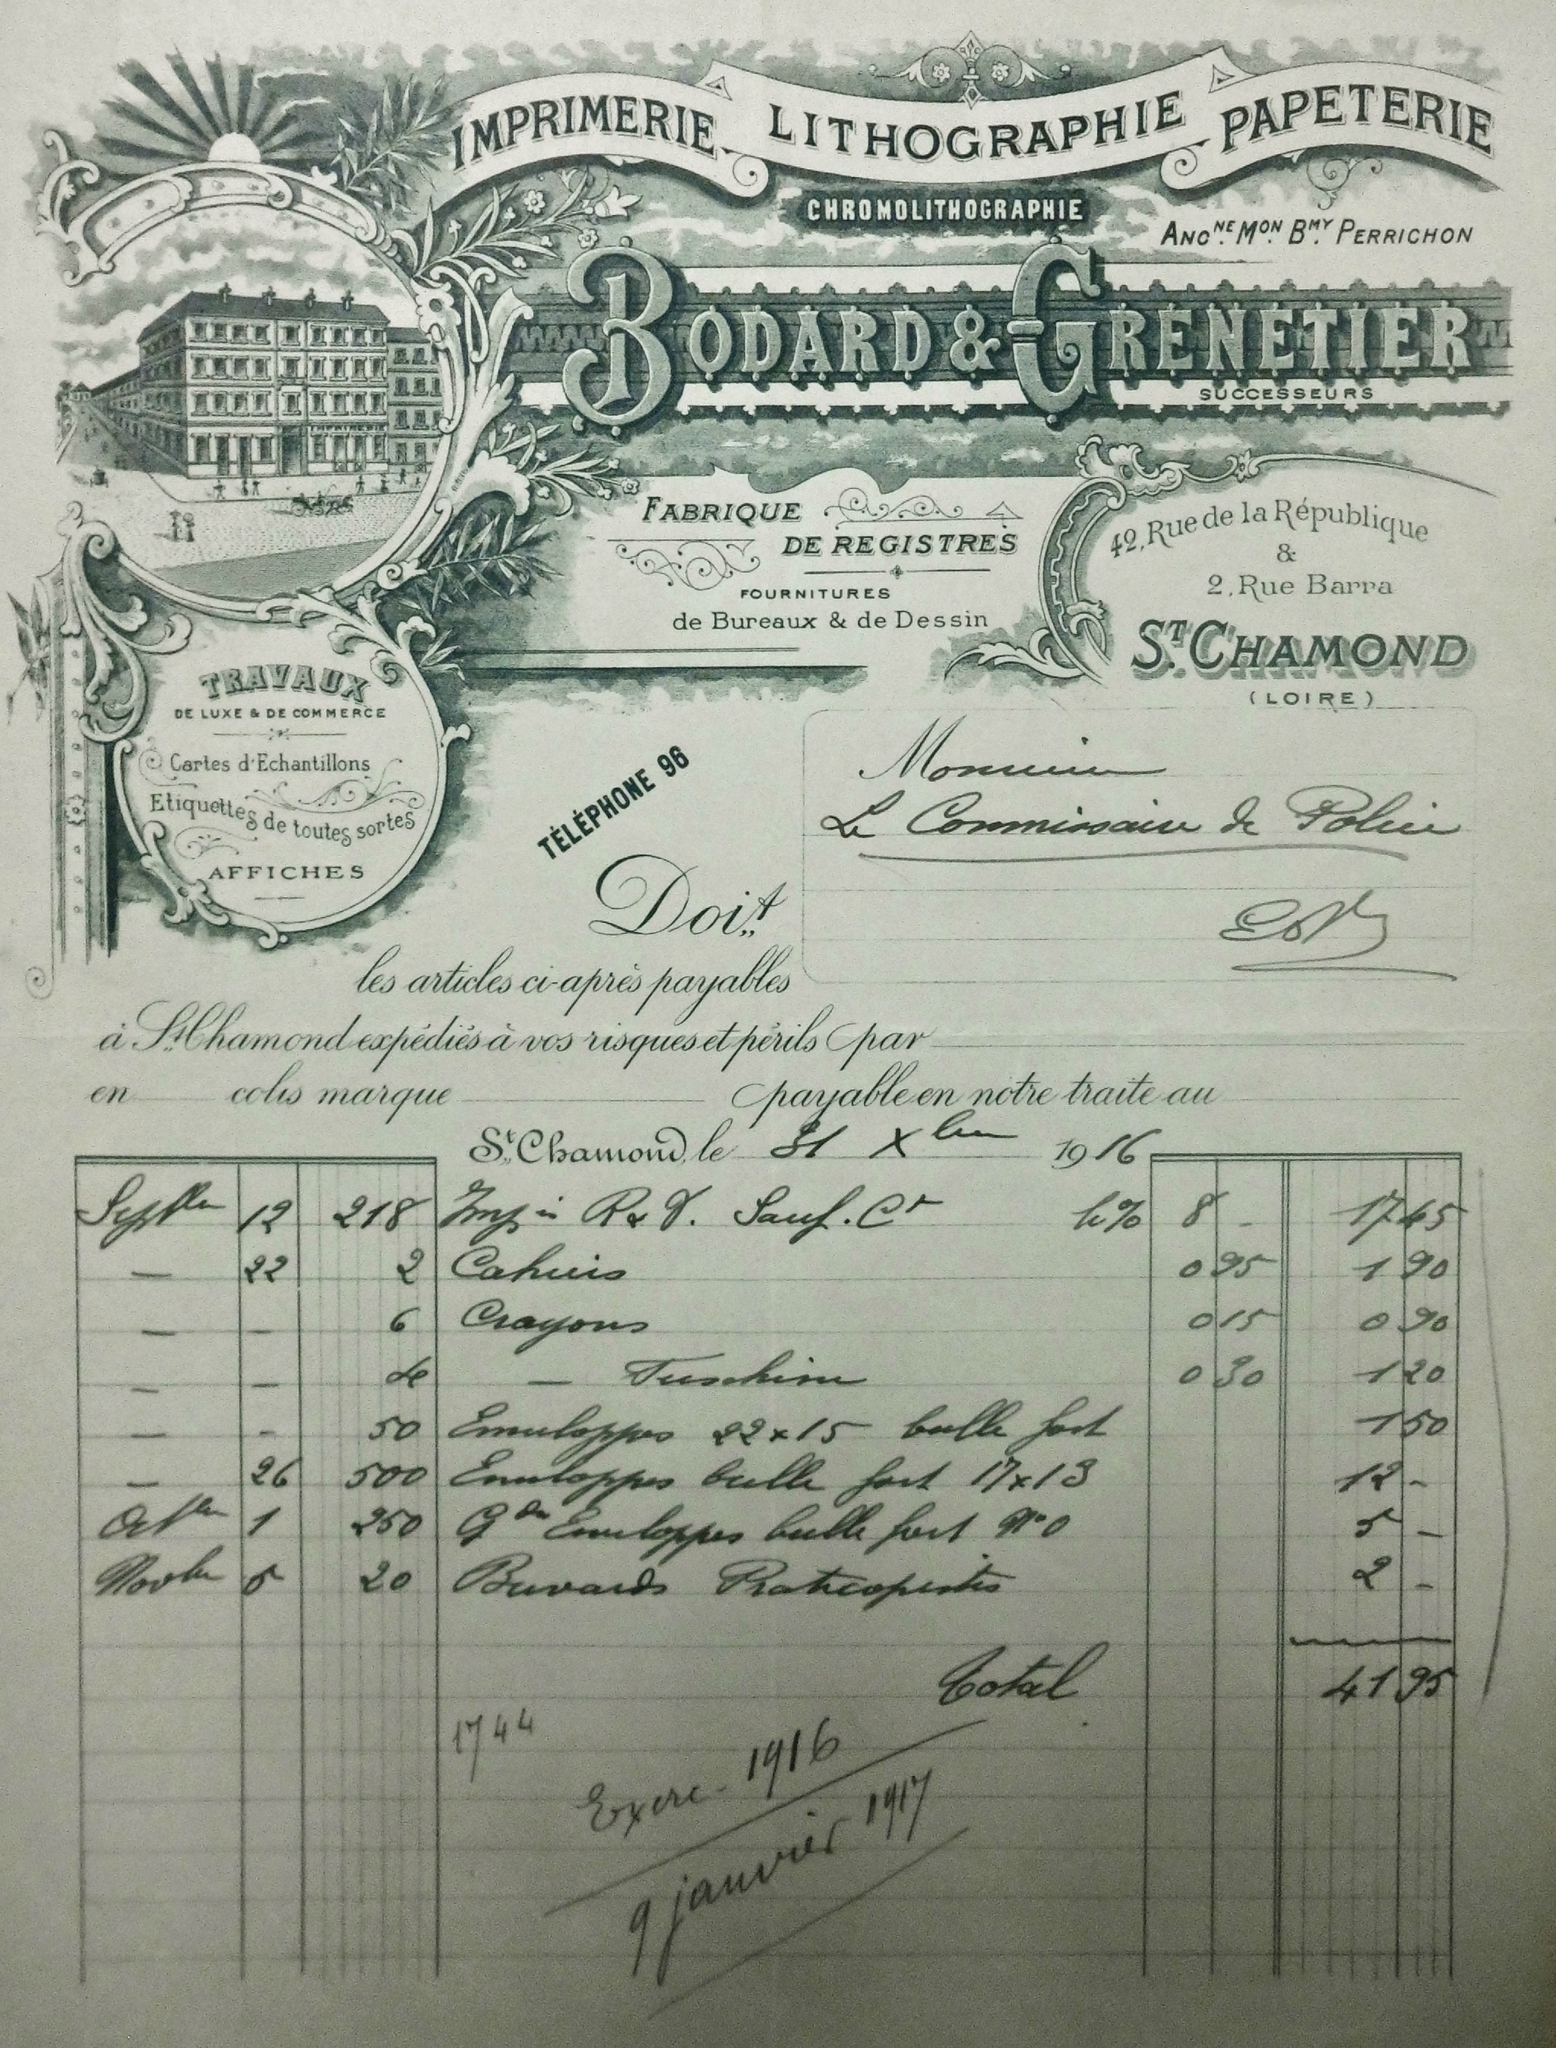 IMPRIMERIE LITHOGRAPHIE PAPETERIE
CHROMOLITHOGRAPHIE
ANC^NE. M^ON. B^MY. PERRICHON
BODARD & GRENETIER
SUCCESSEURS
IMPRIMERIE
FABRIQUE
DE REGISTRES
FOURNITURES
de Bureaux & de Dessin
42, Rue de la République
&
2, Rue Barra
S^T. CHAMOND
(LOIRE)
TRAVAUX
DE LUXE & DE COMMERCE
Cartes d'Echantillons
Etiquettes de toutes sortes
AFFICHES
TÉLÉPHONE 96
Monsieur
Le Commissaire de Police
Doit
les articles ci-après payables
à St. Chamond expédiés à vos risques et périls par
en colis marque payable en notre traite au
St. Chamond, le 31 Xbre 1916
Septbre 12 218 Imp R & V. Sauf. Ct le % 8 - 17 45
— 22 2 Cahiers 0 95 1 90
— — 6 Crayons 0 15 0 90
— — 4 — 0 30 1 20
— - 50 Enveloppes 22x15 bulle fort 1 50
— 26 500 Enveloppes bulle fort 17x13 12 -
Octbre 1 250 Gdes Enveloppes bulle fort N° 0 5 —
Novbre 5 20 Buvards 2 -
Total 41 95
1744
Exerc- 1916
9 janvier 1917